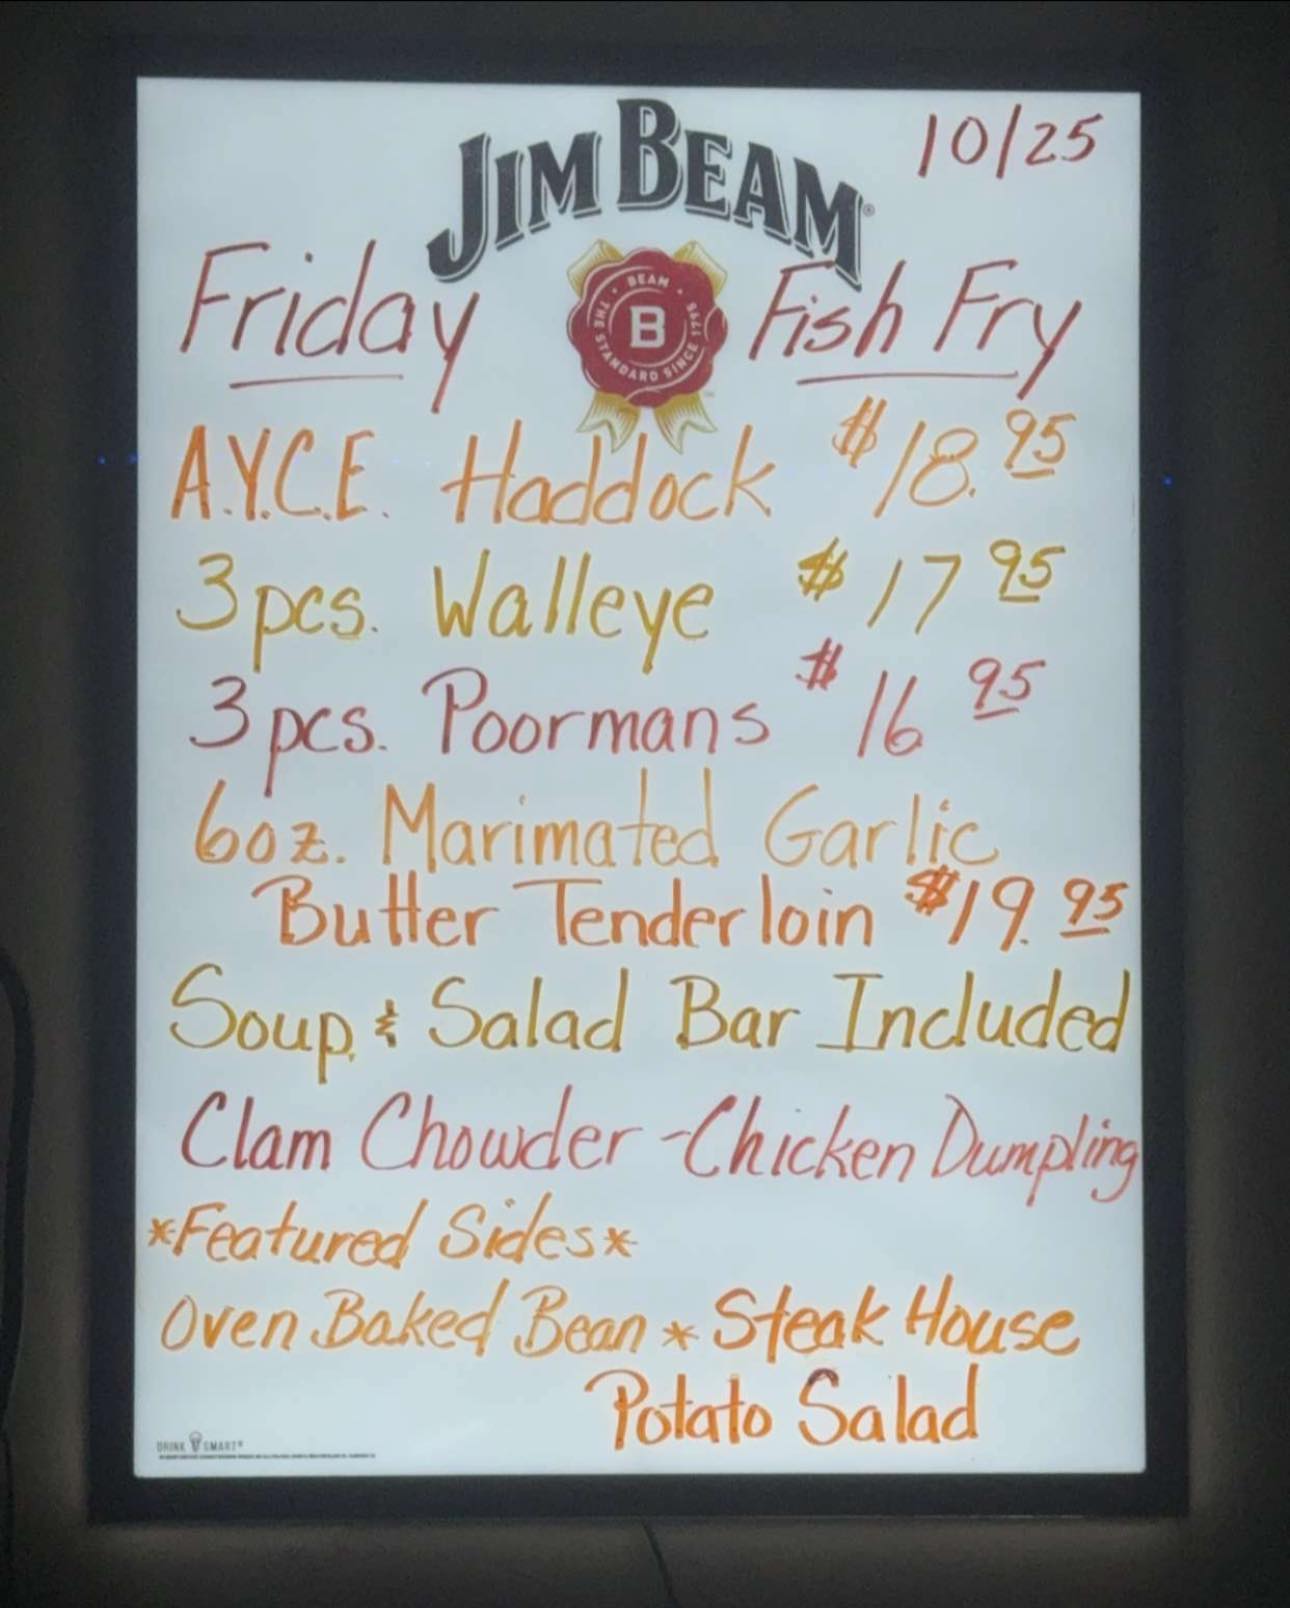 10/25
JIM BEAM®
Friday Fish Fry
BEAM
B
THE STANDARD SINCE 1795
A.Y.C.E. Haddock $18.95
3 pcs. Walleye $17 95
3 pcs. Poormans $16 95
6oz. Marimated Garlic
Butter Tenderloin $19.95
Soup & Salad Bar Included
Clam Chowder - Chicken Dumpling
*Featured Sides*
Oven Baked Bean * Steak House
Potato Salad
DRINK SMART®